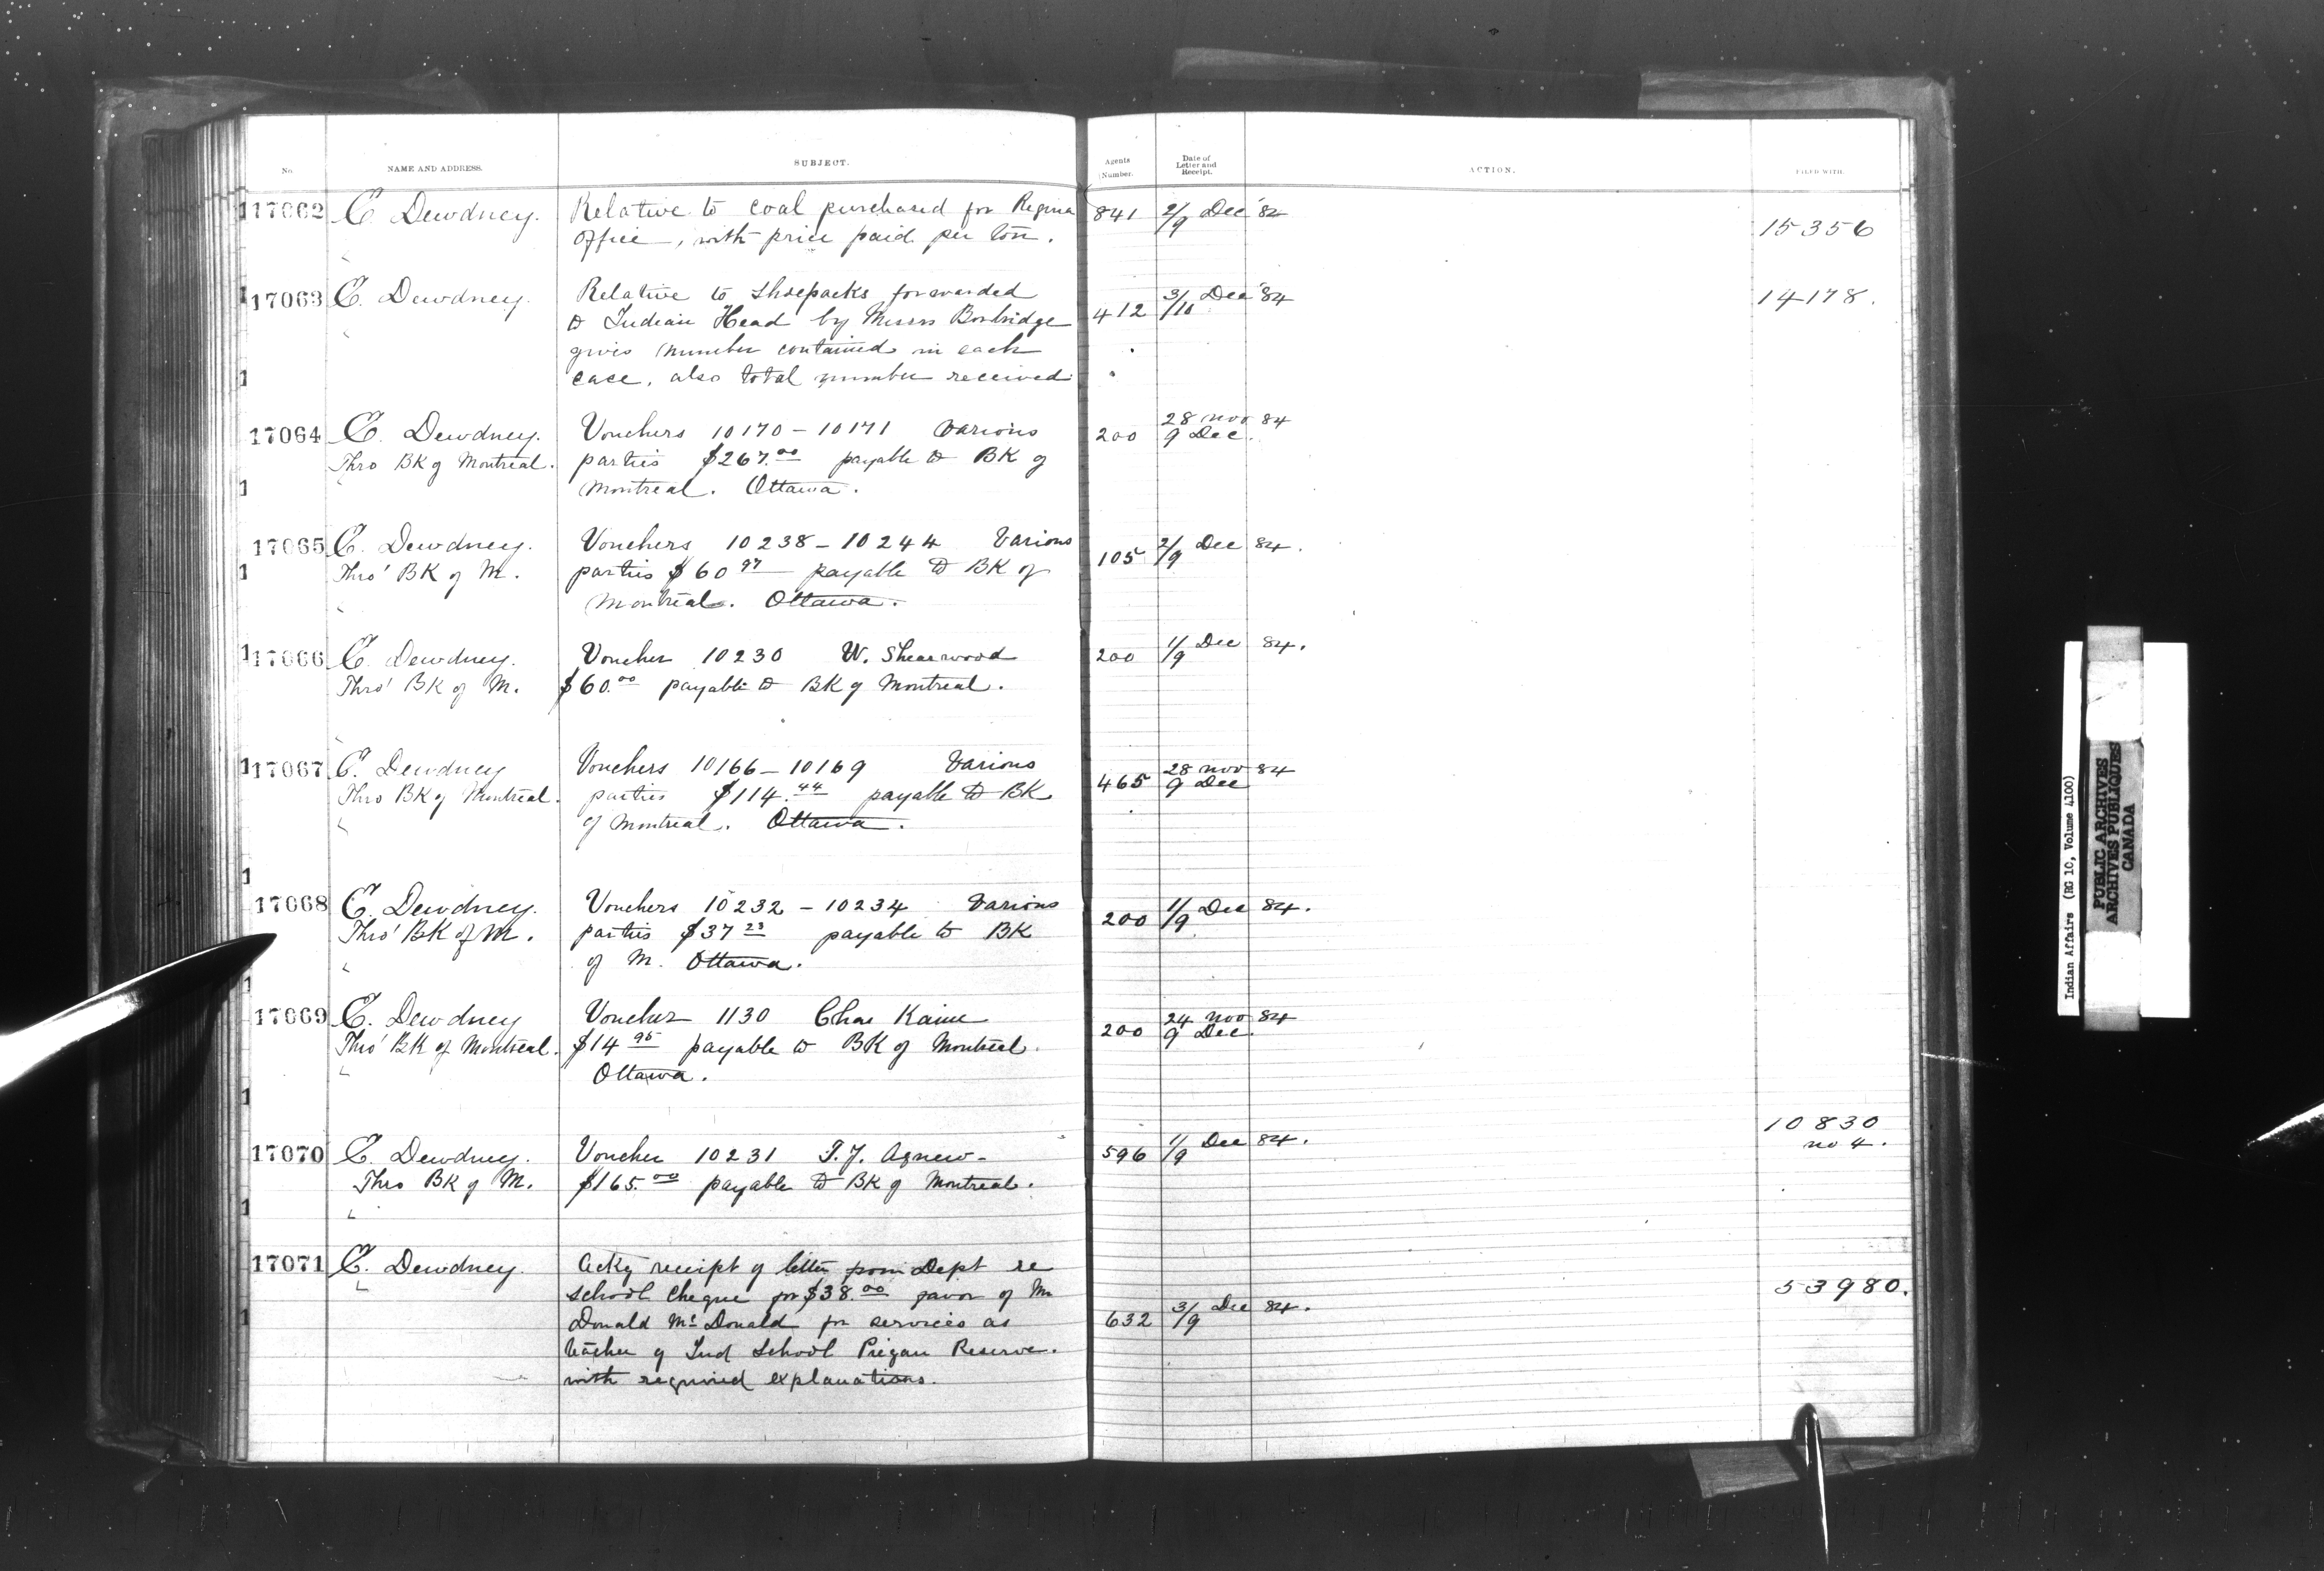 No. NAME AND ADDRESS. SUBJECT. Agents Number. Date of Letter and Receipt. ACTION. FILED WITH.
17062 E. Dewdney. Relative to coal purchased for Regina 841 2/9 Dec '82
office, with price paid per ton. 15356
17063 E. Dewdney. Relative to Shoepacks forwarded 412 3/10 Dec '84 14178.
to Indian Head by Messrs Borbridge
gives number contained in each
case, also total number received
17064 E. Dewdney. Vouchers 10170 - 10171 Various 200 28 Nov 84
9 Dec.
Thro BK of Montreal. parties $267.00 payable to BK of
Montreal. Ottawa.
17065 E. Dewdney. Vouchers 10238 - 10244 Various 105 2/9 Dec 84.
Thro' BK of M. parties $60 97 payable to BK of
Montreal. Ottawa.
17066 E. Dewdney. Voucher 10230 W. Shearwood 200 1/9 Dec 84.
Thro' BK of M. $60.00 payable to BK of Montreal.
17067 E. Dewdney Vouchers 10166 - 10169 Various 465 28 Nov 84
9 Dec
Thro BK of Montreal. parties $114.44 payable to BK
of Montreal. Ottawa.
17068 E. Dewdney. Vouchers 10232 - 10234 Various 200 1/9 Dec 84.
Thro' BK of M. parties $37 23 payable to BK
of M. Ottawa.
17069 E. Dewdney Voucher 1130 Chas Kaine 200 24 Nov 84
9 Dec.
Thro' BK of Montreal. $14 95 payable to BK of Montreal.
Ottawa.
17070 E. Dewdney. Voucher 10231 T. J. Agnew - 596 1/9 Dec 84. 10830
no 4.
Thro BK of M. $165.00 payable to BK of Montreal.
17071 E. Dewdney. Ackg receipt of letter from Dept re
school cheque for $38.00 favor of Mr 53980.
Donald McDonald for services as 632 3/9 Dec 84.
teacher of Ind School Piegan Reserve.
with required explanations.
Indian Affairs (RG 10, Volume 4100)
PUBLIC ARCHIVES
ARCHIVES PUBLIQUES
CANADA